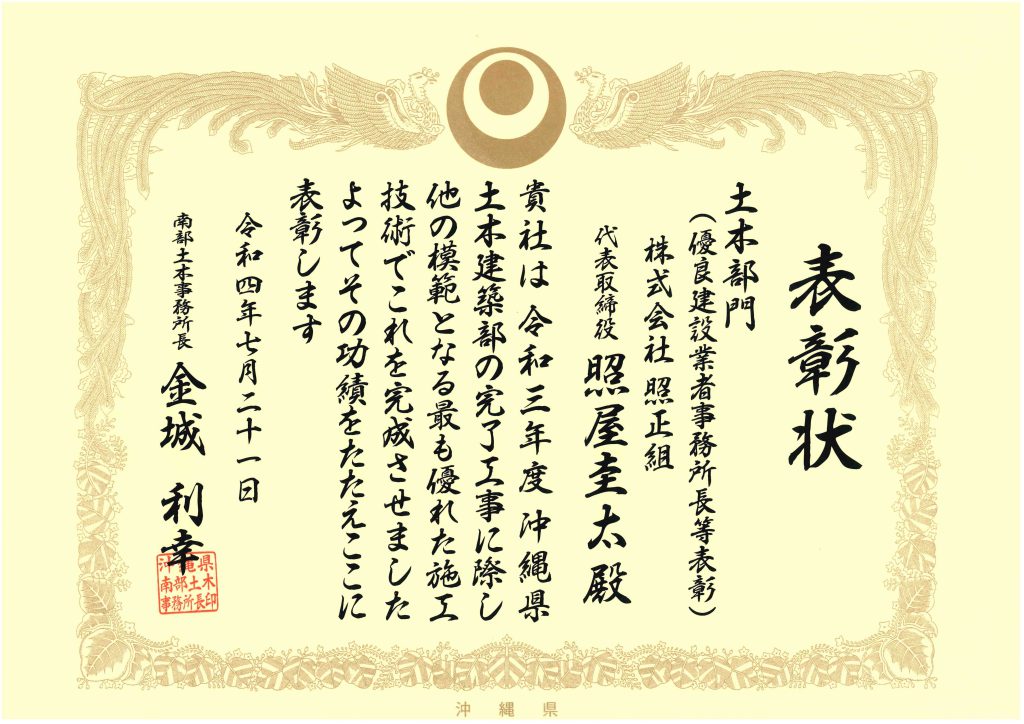 表彰状
土木部門
(優良建設業者事務所長等表彰)
株式会社 照正組
代表取締役 照屋圭太殿
貴社は令和三年度沖縄県
土木建築部の完了工事に際し
他の模範となる最も優れた施工
技術でこれを完成させました
よってその功績をたたえここに
表彰します
令和四年七月二十一日
南部土木事務所長 金城 利幸
沖縄県
南部土木
事務所長印
沖縄県